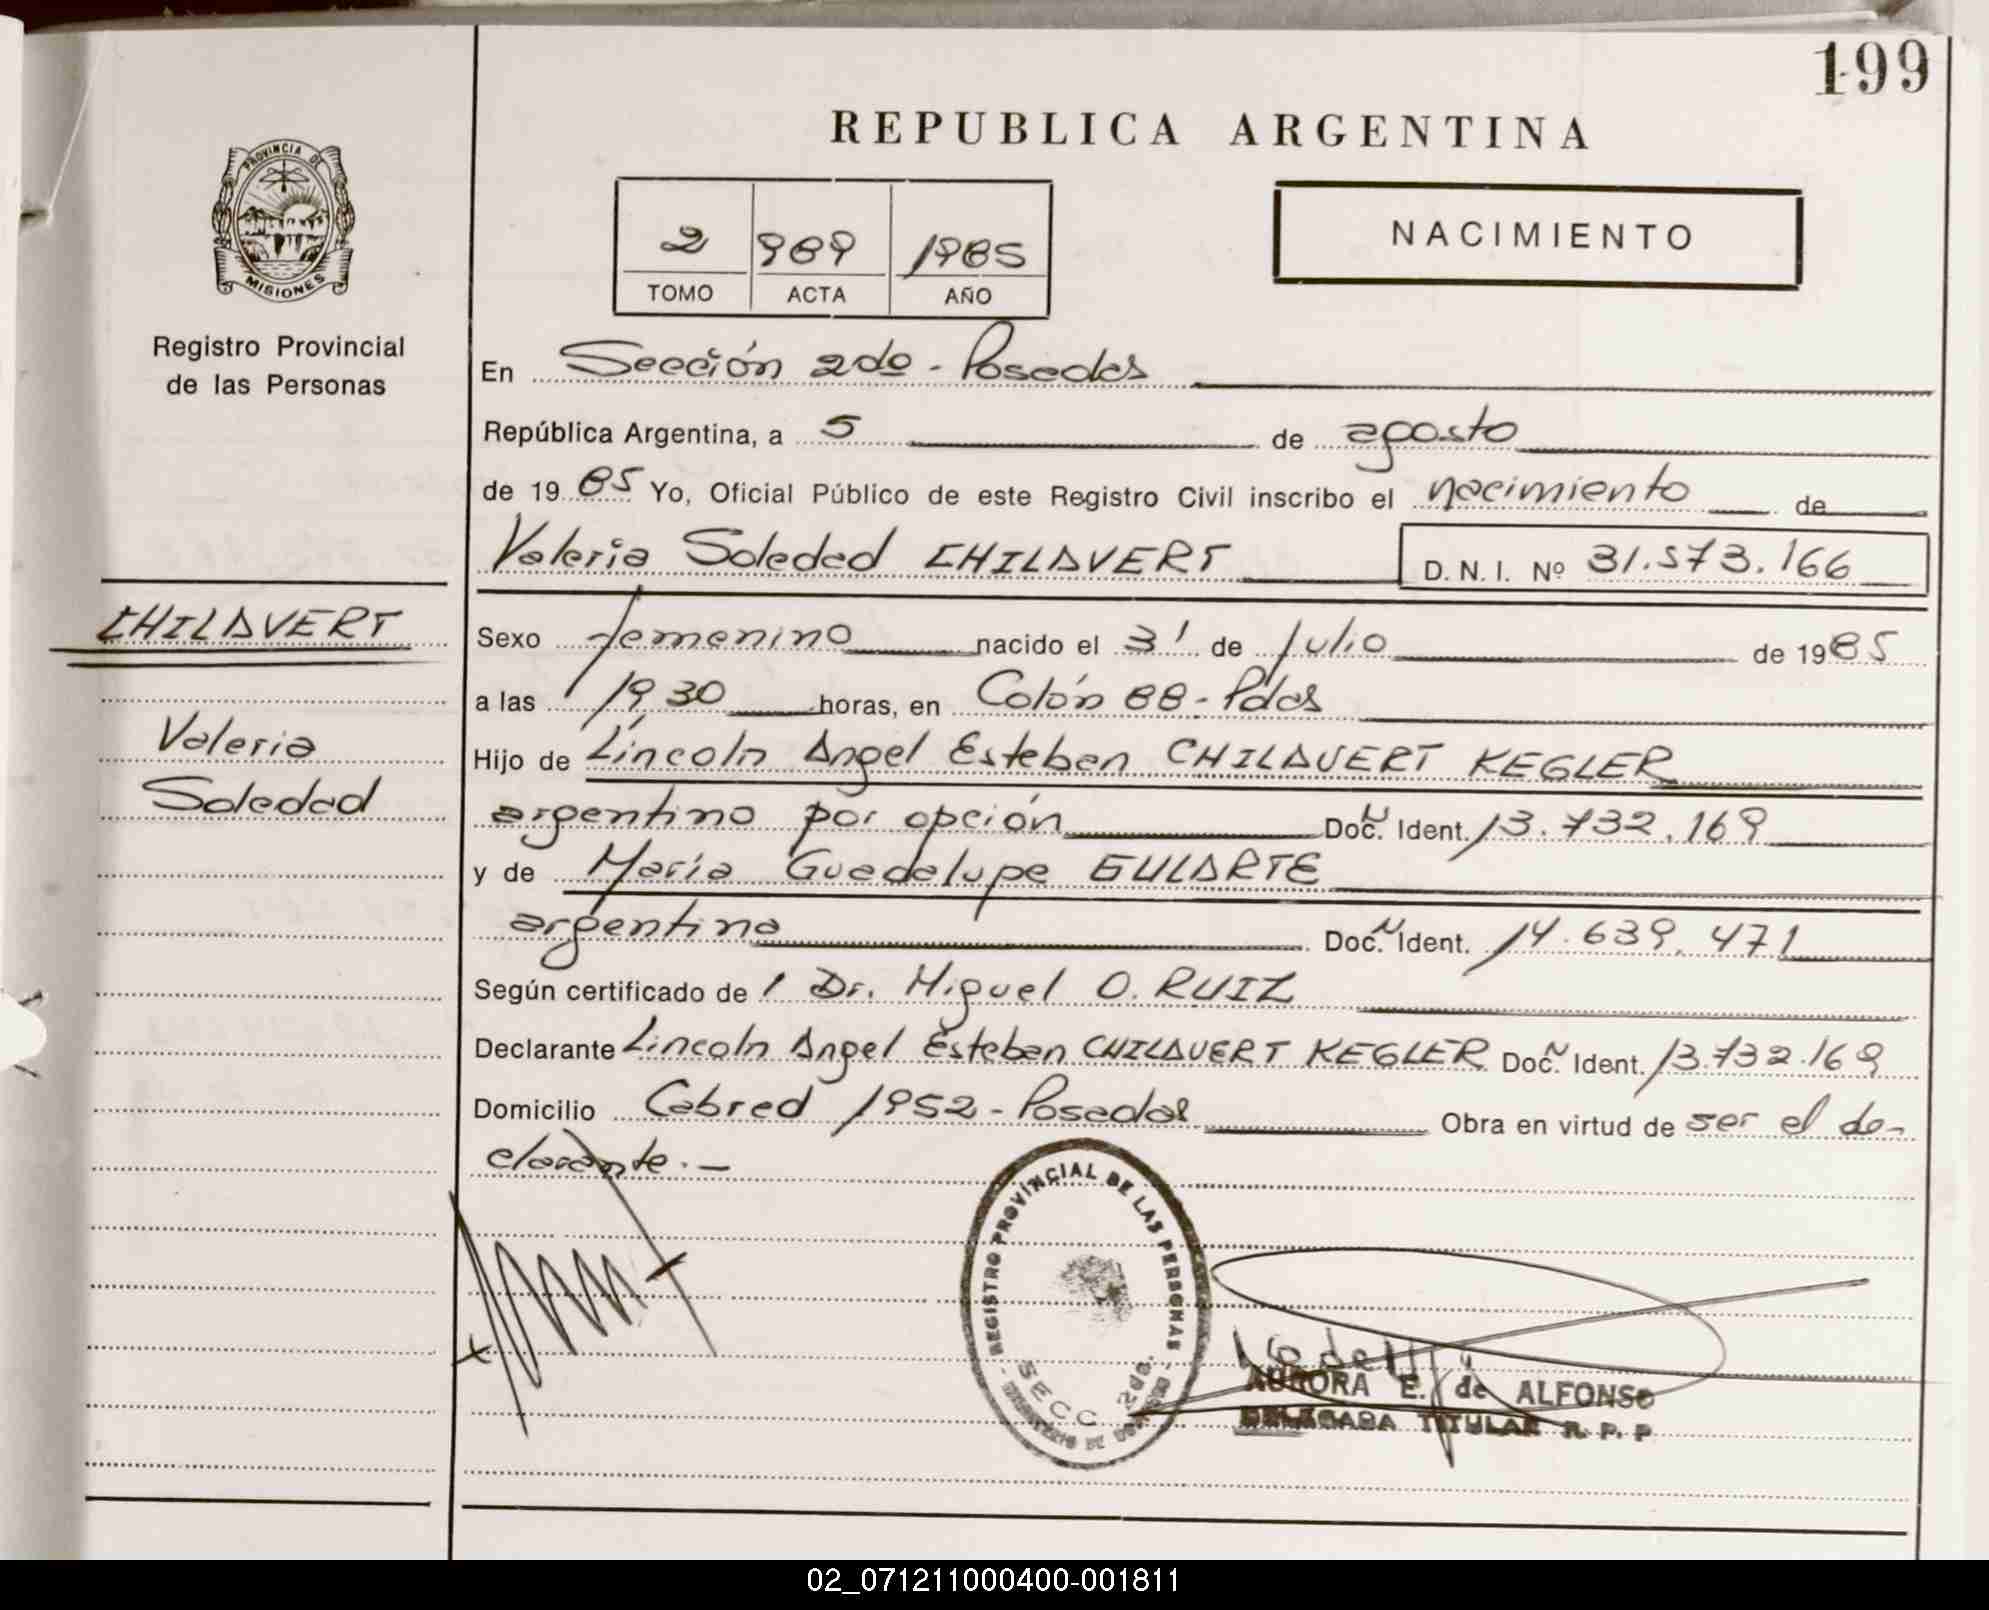 199
PROVINCIA DE
MISIONES
Registro Provincial
de las Personas
CHILAVERT
Valeria
Soledad
REPUBLICA ARGENTINA
2 989 1985
TOMO ACTA AÑO
NACIMIENTO
En Sección 2do - Posadas
República Argentina, a 5 de agosto
de 19 85 Yo, Oficial Público de este Registro Civil inscribo el nacimiento de
Valeria Soledad CHILAVERT D. N. I. Nº 31.573.166
Sexo femenino nacido el 31 de julio de 1985
a las 19,30 horas, en Colón 88 - Pdas
Hijo de Lincoln Angel Esteban CHILAVERT KEGLER
argentino por opción Doc. N Ident. 13.732.169
y de María Guadalupe GULARTE
argentina Doc. N Ident. 14.639.471
Según certificado de / Dr. Miguel O. RUIZ
Declarante Lincoln Angel Esteban CHILAVERT KEGLER Doc. N Ident. 13.732.169
Domicilio Cabred 1952 - Posadas Obra en virtud de ser el de-
clarante.-
REGISTRO PROVINCIAL DE LAS PERSONAS
SECC
AURORA E. de ALFONSO
DELEGADA TITULAR R. P. P
02_071211000400-001811